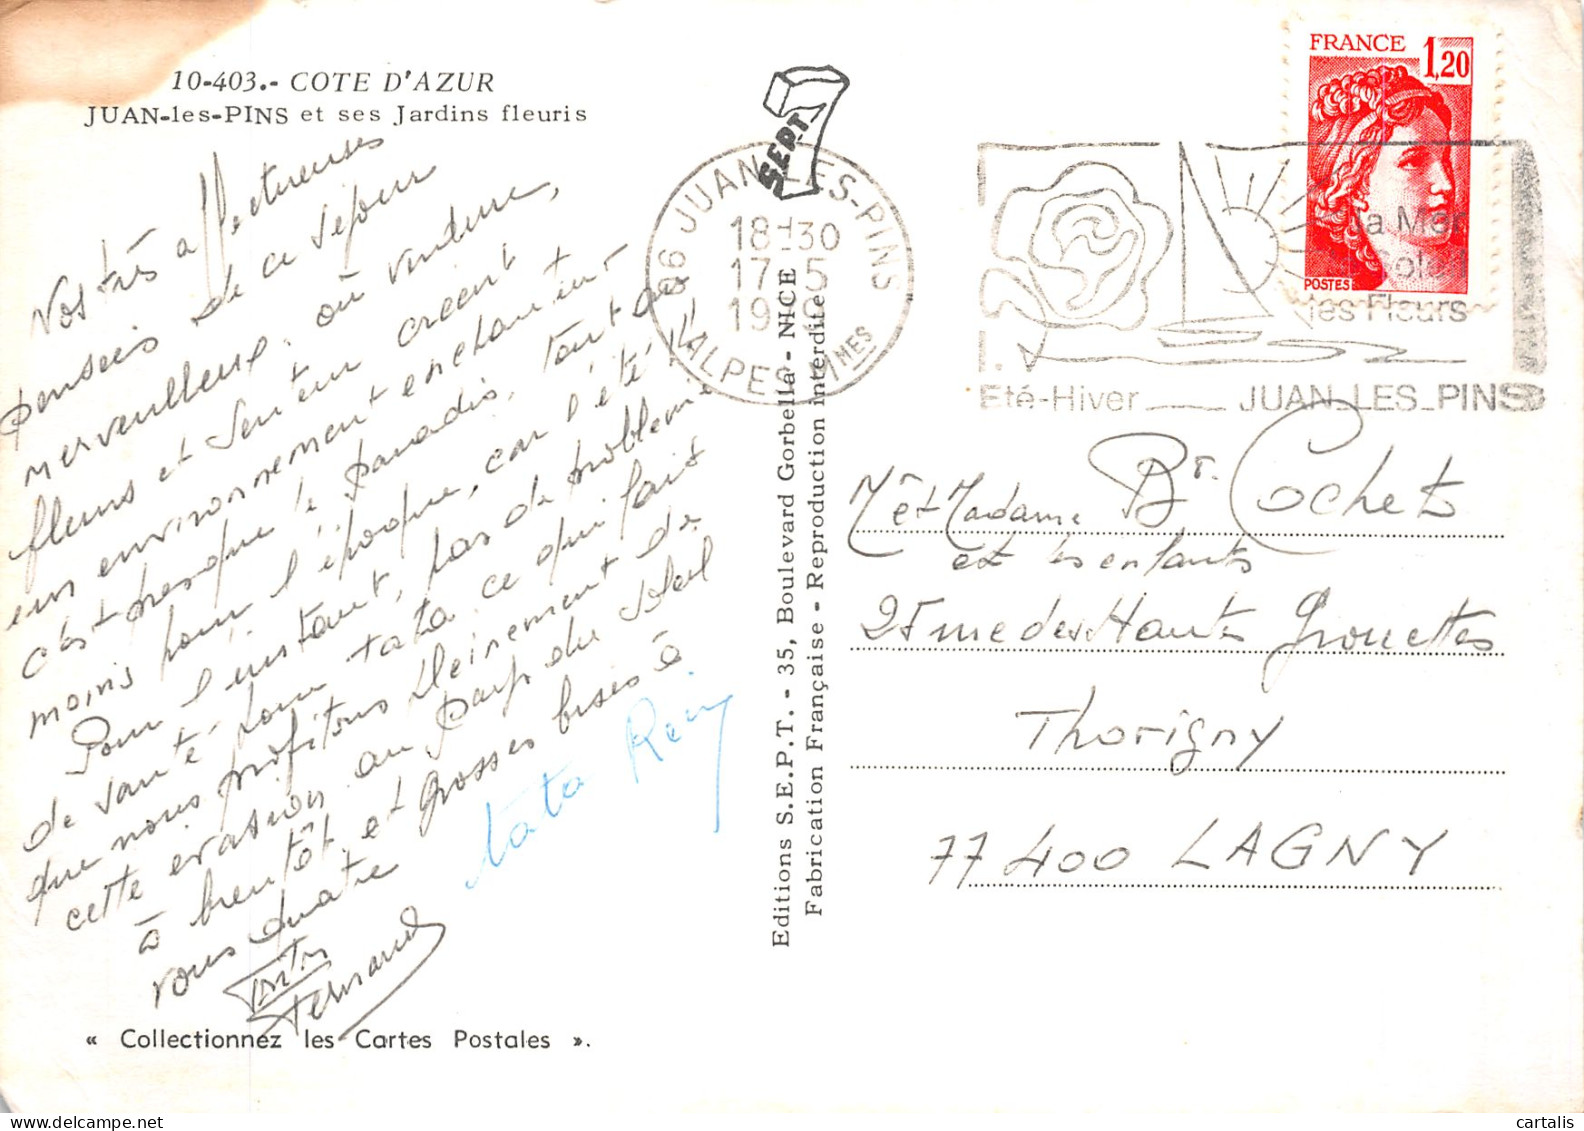 10-403.- COTE D'AZUR
JUAN-les-PINS et ses Jardins fleuris
Nos très affectueuses
pensées de ce séjour
merveilleux. où verdure,
fleurs et senteur créent
un environnement enchanteur
c'est presque le paradis, tout au
moins pour l'époque, car l'été !!
Pour l'instant, pas de problème
de santé pour tata ce qui fait
que nous profitons pleinement de
cette évasion au pays du soleil
à bientôt et grosses bises à
vous quatre
tata Reine
Fernand
« Collectionnez les Cartes Postales ».
SEPT
Editions S.E.P.T. - 35, Boulevard Gorbella - NICE
Fabrication Française - Reproduction Interdite
06 JUAN-LES-PINS
18H30
17-5
19
ALPES Mmes
FRANCE 1,20
POSTES
la Mer
les Fleurs
Eté-Hiver JUAN_LES_PINS
Mr et Madame Br. Cochets
et les enfants
25 rue des Hautes Grouettes
Thorigny
77400 LAGNY
cartalis